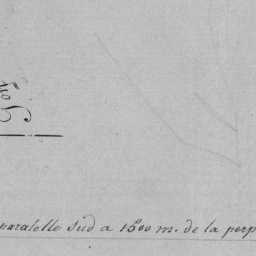 paralelle Sud a 1500 m. de la perp